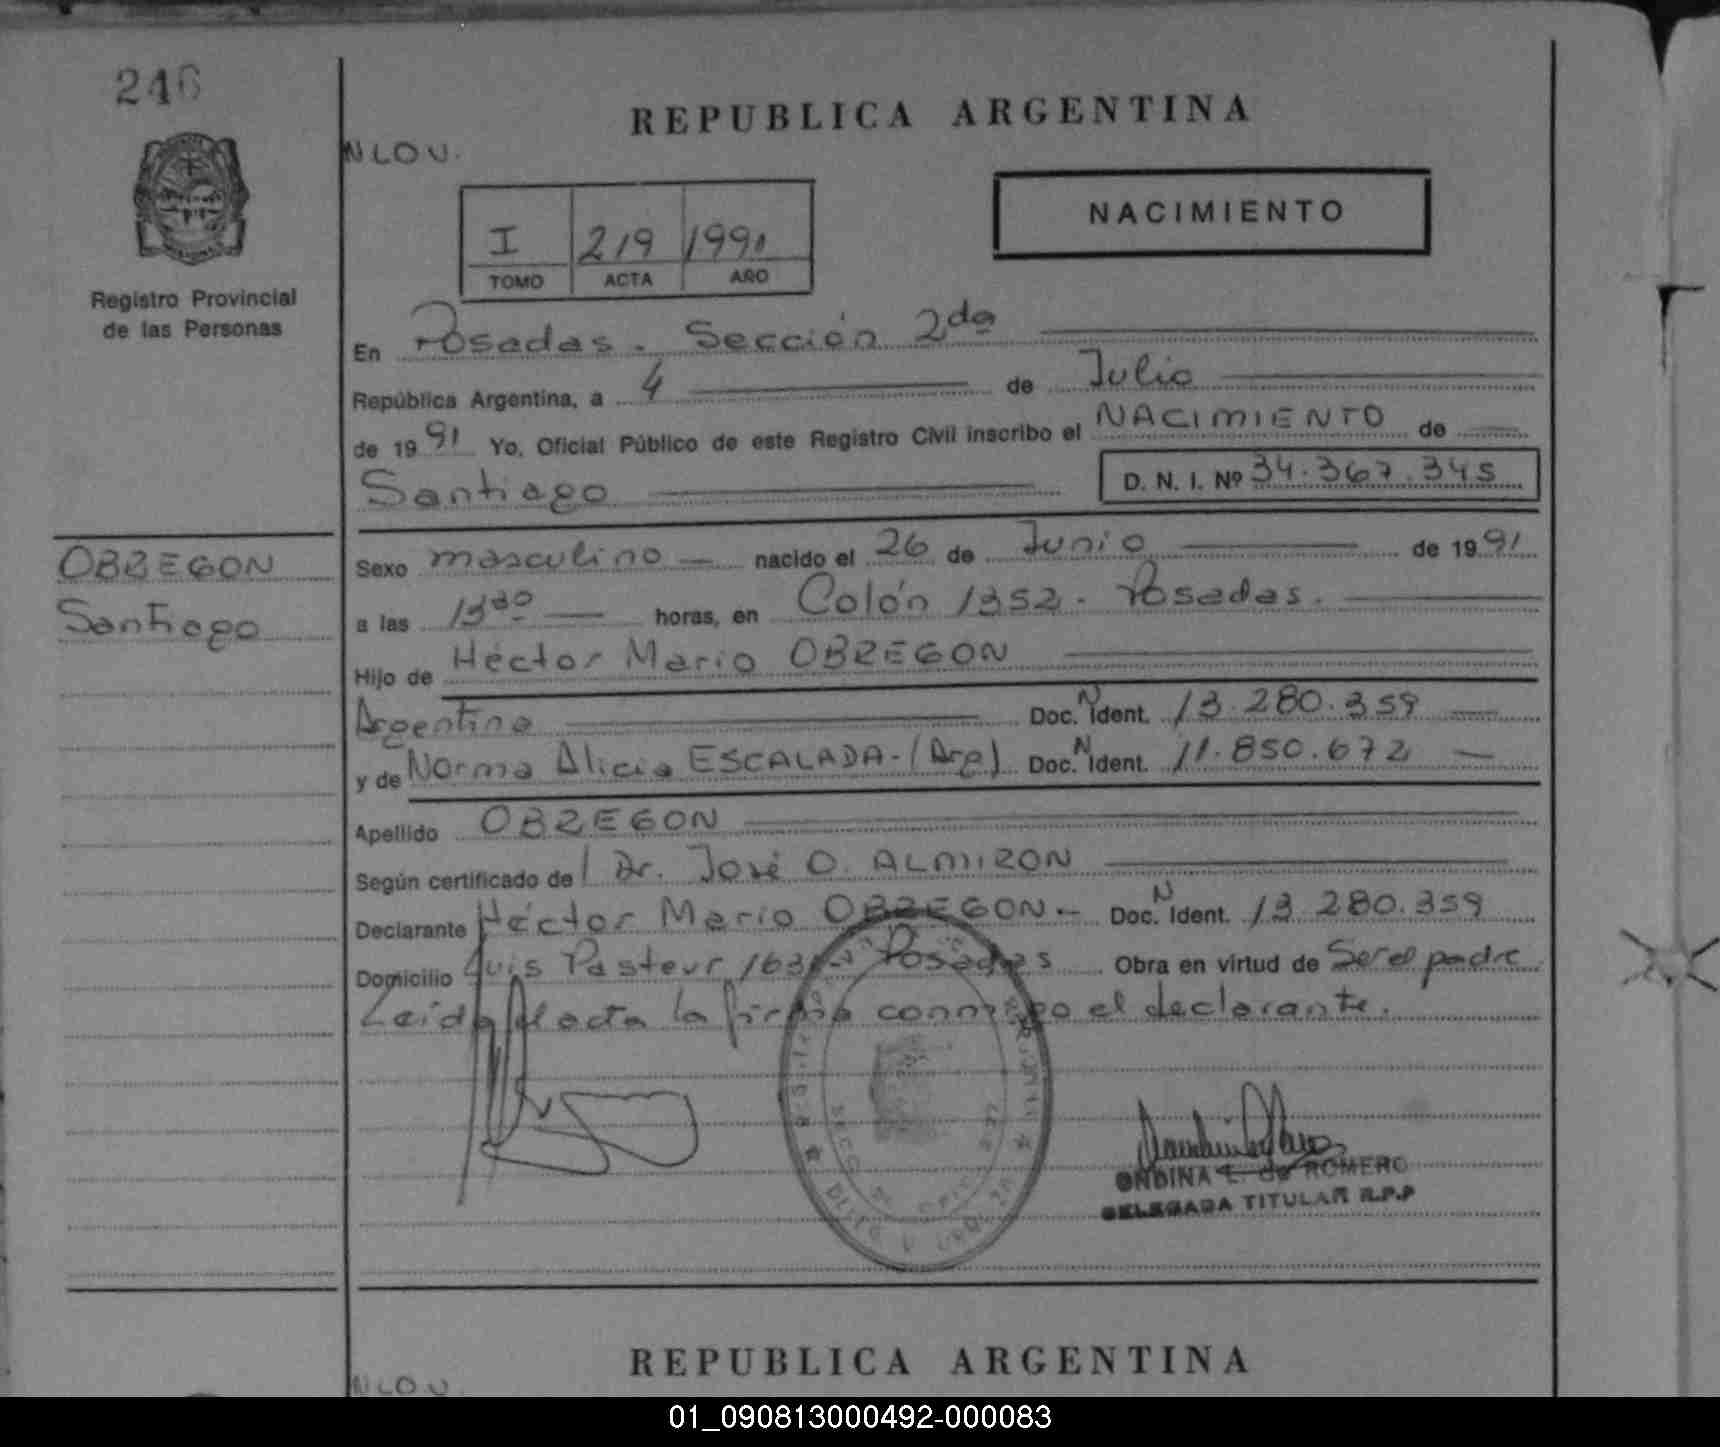 246
REPUBLICA ARGENTINA
NLOU.
I 219 1991
TOMO ACTA AÑO
NACIMIENTO
Registro Provincial
de las Personas
En Posadas. Sección 2da
República Argentina, a 4 de Julio
de 1991 Yo, Oficial Público de este Registro Civil inscribo el NACIMIENTO de
Santiago D. N. I. Nº 34.367.345
OBREGON
Santiago
Sexo masculino nacido el 26 de Junio de 1991
a las 13 30 horas, en Colón 1352. Posadas.
Hijo de Héctor Mario OBREGON
Argentino Doc. N Ident. 13.280.359
y de Norma Alicia ESCALADA-(Arg) Doc. N Ident. 11.850.672
Apellido OBREGON
Según certificado de Dr. José O. ALMIRON
Declarante Héctor Mario OBREGON- Doc. N Ident. 13.280.359
Domicilio Luis Pasteur Posadas Obra en virtud de Ser el padre
Leida el acta la firma conmigo el declarante.
ONDINA L. de ROMERO
DELEGADA TITULAR R.P.P
REPUBLICA ARGENTINA
NLOU.
01_090813000492-000083